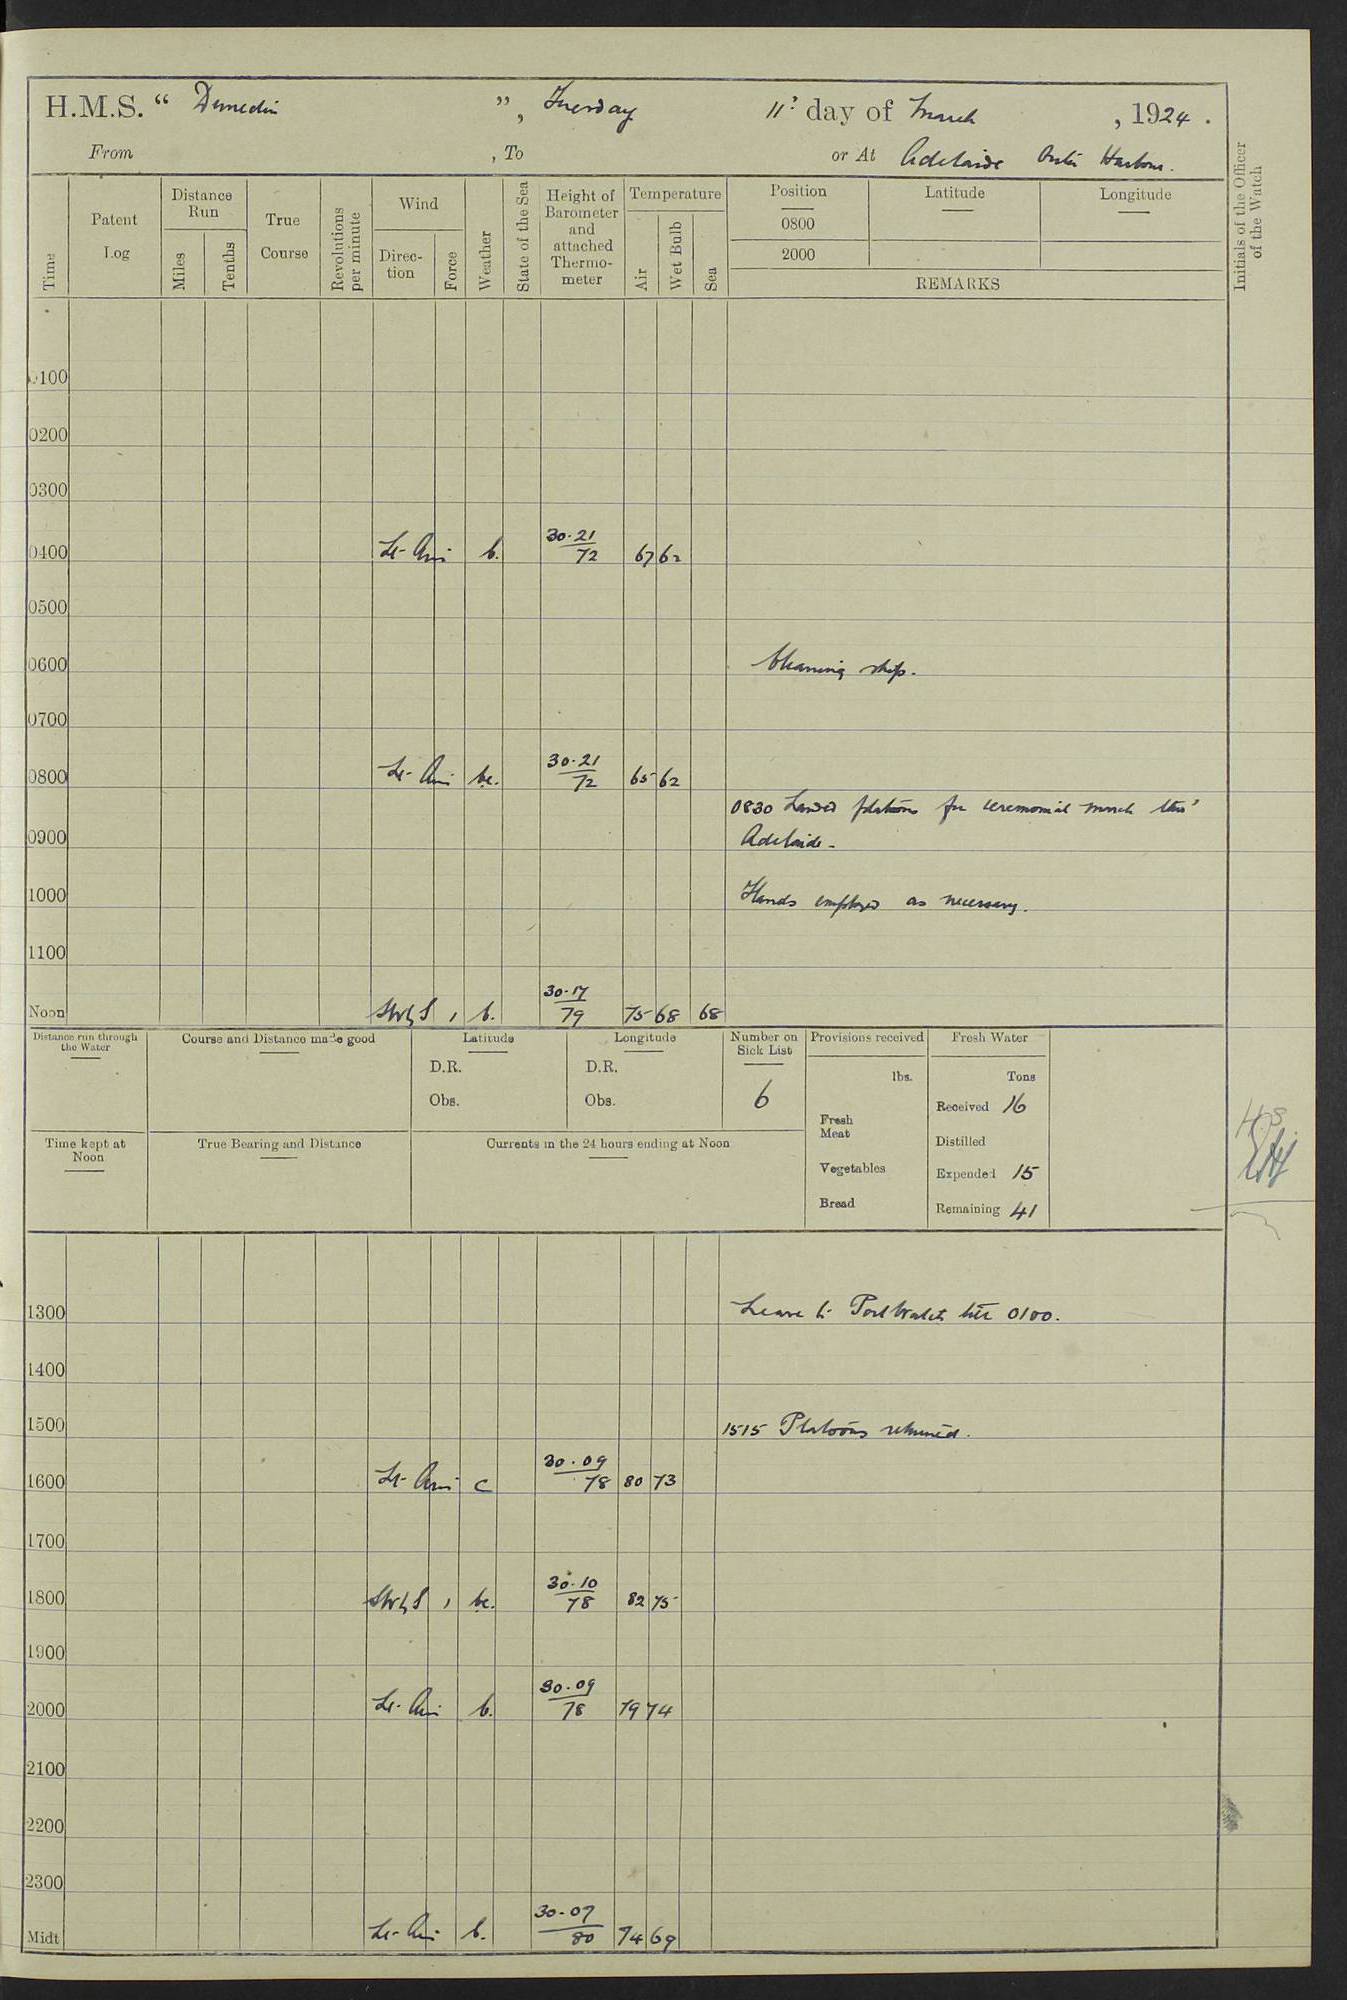 H.M.S. “ Dunedin ”, Tuesday 11th day of March, 1924.
From , To or At Adelaide Outer Harbour.
Time
Patent Log
Distance Run
Miles
Tenths
True Course
Revolutions per minute
Wind
Direction
Force
Weather
State of the Sea
Height of Barometer and attached Thermometer
Temperature
Air
Wet Bulb
Sea
Position Latitude Longitude
0800
2000
REMARKS
Initials of the Officer of the Watch
0100
0200
0300
0400 Lt- Airs b. 30.21/72 67 62
0500
0600 Cleaning ship.
0700
0800 Lt- Airs bc. 30.21/72 65 62
0830 Landed platoons for ceremonial march thro'
0900 Adelaide.
1000 Hands employed as necessary.
1100
Noon SWbyS 1 b. 30.17/79 75 68 68
Distance run through the Water
Course and Distance made good
Latitude
D.R.
Obs.
Longitude
D.R.
Obs.
Number on Sick List
6
Provisions received
lbs.
Fresh Meat
Vegetables
Bread
Fresh Water
Tons
Received 16
Distilled
Expended 15
Remaining 41
Time kept at Noon
True Bearing and Distance
Currents in the 24 hours ending at Noon
1300 Leave to Port Watch till 0100.
1400
1500 1515 Platoons returned.
1600 Lt- Airs c 30.09/78 80 73
1700
1800 SWbyS 1 bc. 30.10/78 82 75
1900
2000 Lt- Airs b. 30.09/78 79 74
2100
2200
2300
Midt Lt- Airs b. 30.07/80 74 69